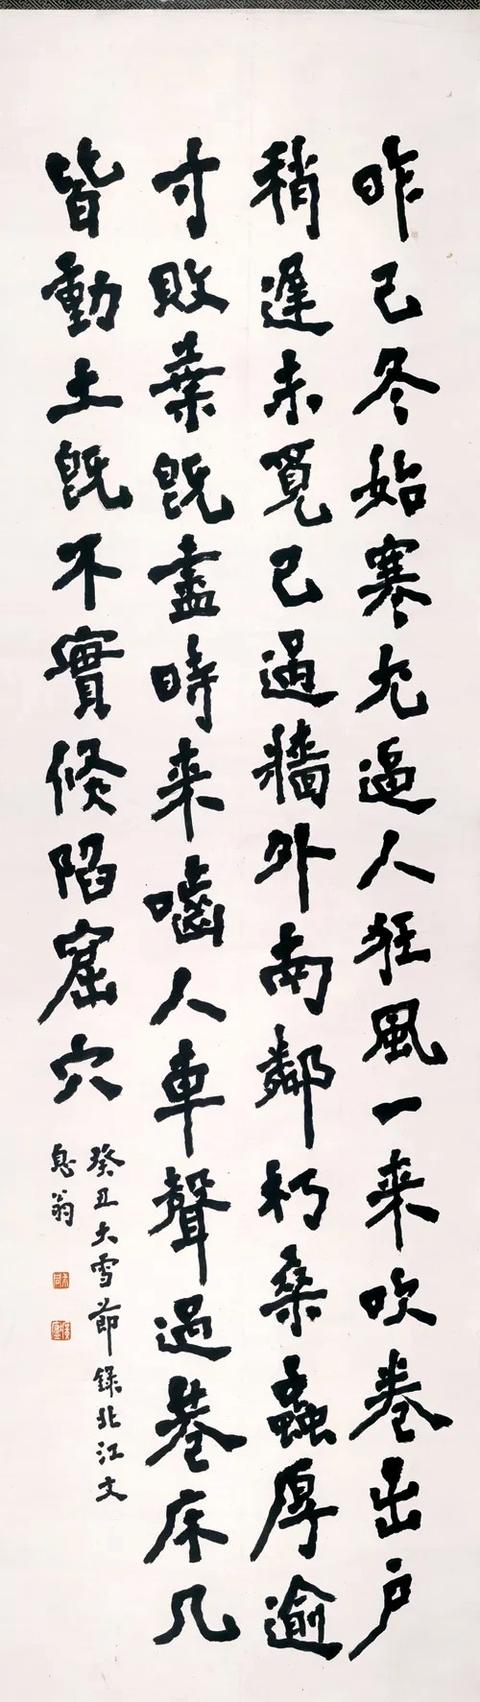 昨已冬始寒尤逼人狂風一来吹卷出戶
稍遲未覓已過牆外南鄰朽桑蟲厚逾
寸敗葉旣盡時来嚙人車聲過巷床几
皆動土旣不實倏陷窟穴
癸丑大雪節錄北江文
息翁